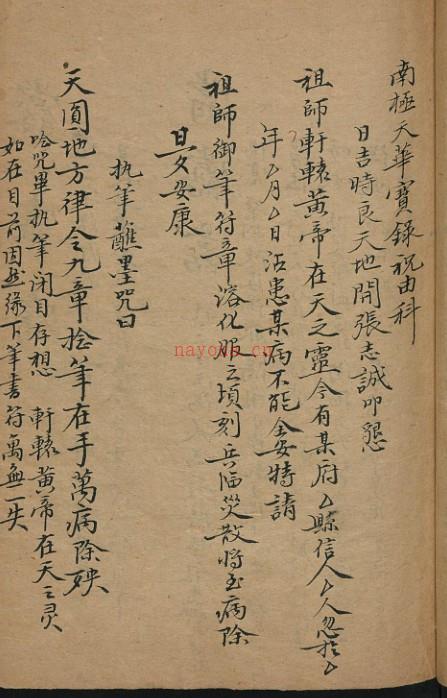 南極天華寶錄祝由科
日吉時良天地開張志誠叩懇
祖師軒轅黃帝在天之靈今有某府厶縣信人厶人忽於厶
年厶月厶日沾患某病不能全安特請
祖師御筆符章溶化服之頃刻兵臨災散將到病除
旦夕安康
执筆蘸墨咒曰
天圓地方律令九章捻筆在手萬病除殃
咒畢执筆闭目存想 軒轅黃帝在天之灵
如在目前因然後下筆書符萬無一失
nayona.cn